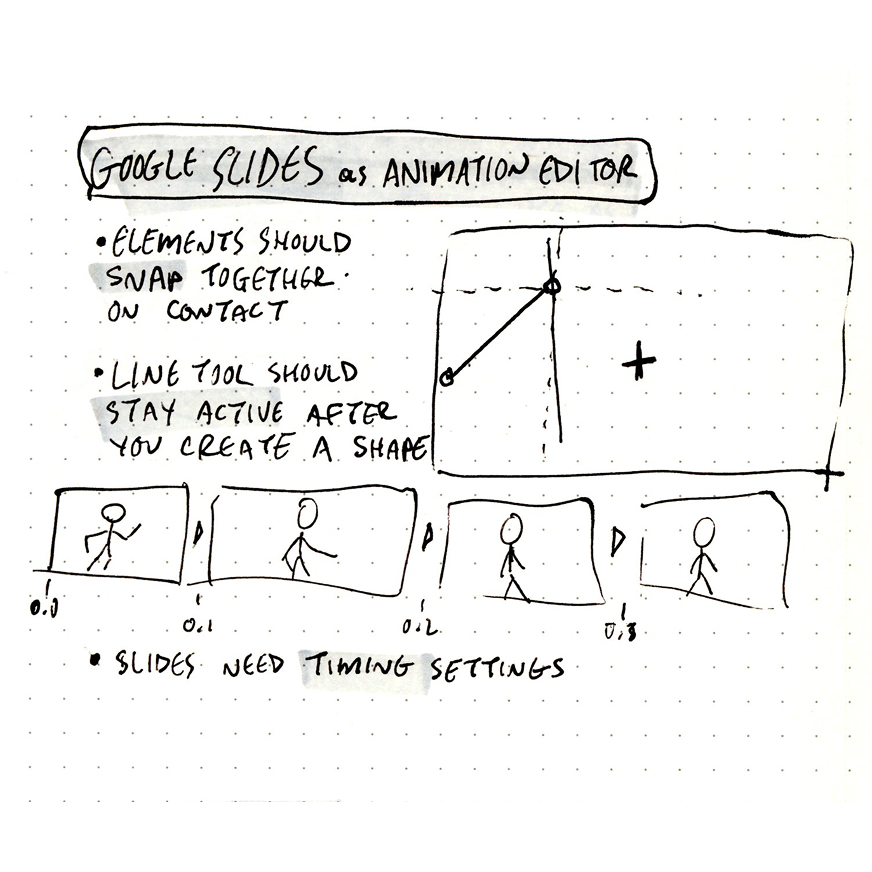 GOOGLE SLIDES as ANIMATION EDITOR
• ELEMENTS SHOULD
SNAP TOGETHER.
ON CONTACT
• LINE TOOL SHOULD
STAY ACTIVE AFTER
YOU CREATE A SHAPE
0.0
0.1
0.2
0.3
• SLIDES NEED TIMING SETTINGS